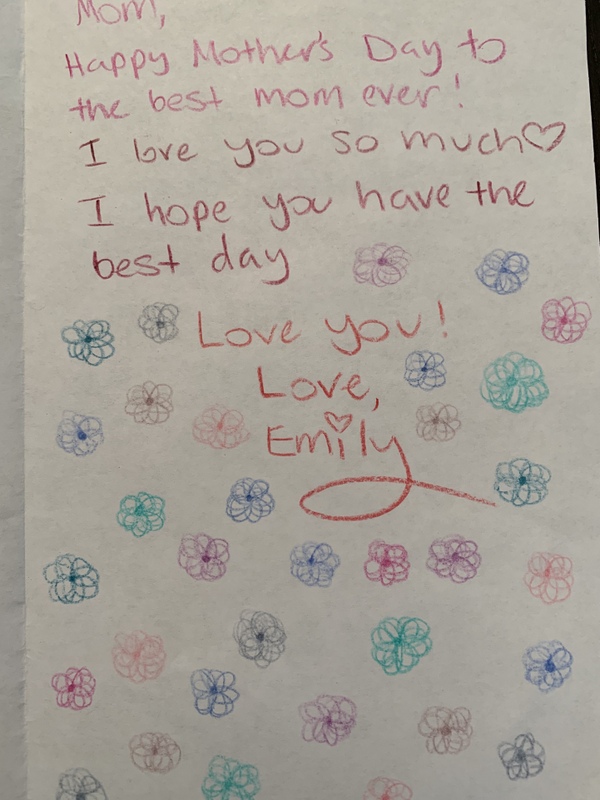 Mom,
Happy Mother's Day to
the best mom ever!
I love you so much♡
I hope you have the
best day
Love you!
Love,
Emily